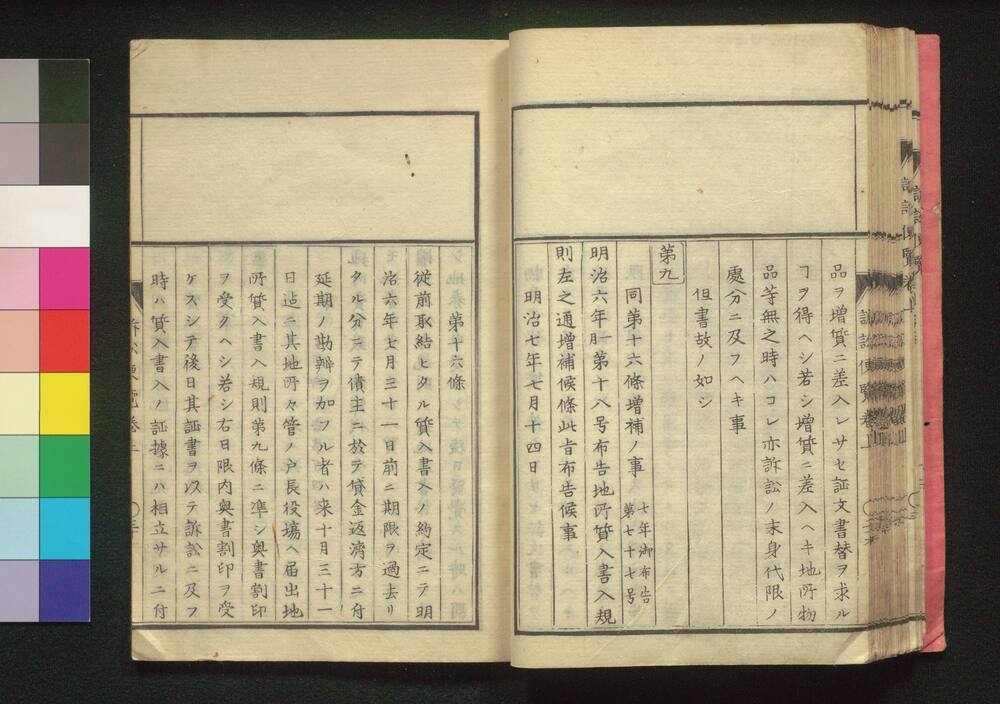 品ヲ増貭ニ差入レサセ証文書替ヲ求ル
ヿヲ得ヘシ若シ増貭ニ差入ヘキ地所物
品等無之時ハコレ亦訴訟ノ末身代限ノ
處分ニ及フヘキ事
但書故ノ如シ
第九
同第十六條増補ノ事
七年御布告
第七十七号
明治六年一月第十八号布告地所貭入書入規
則左之通増補候條此旨布告候事
明治七年七月十四日
第十六條
從前取結ヒタル貭入書入ノ約定ニテ明
治六年七月三十一日前ニ期限ヲ過去リ
タル分ニテ債主ニ於テ貸金返済方ニ付
延期ノ勘辨ヲ加フル者ハ来十月三十一
日迠ニ其地所々管ノ戸長役塲ヘ届出地
所貭入書入規則第九條ニ凖シ奥書割印
ヲ受クヘシ若シ右日限内奥書割印ヲ受
ケスシテ後日其証書ヲ以テ訴訟ニ及フ
時ハ貭入書入ノ証據ニハ相立サルニ付